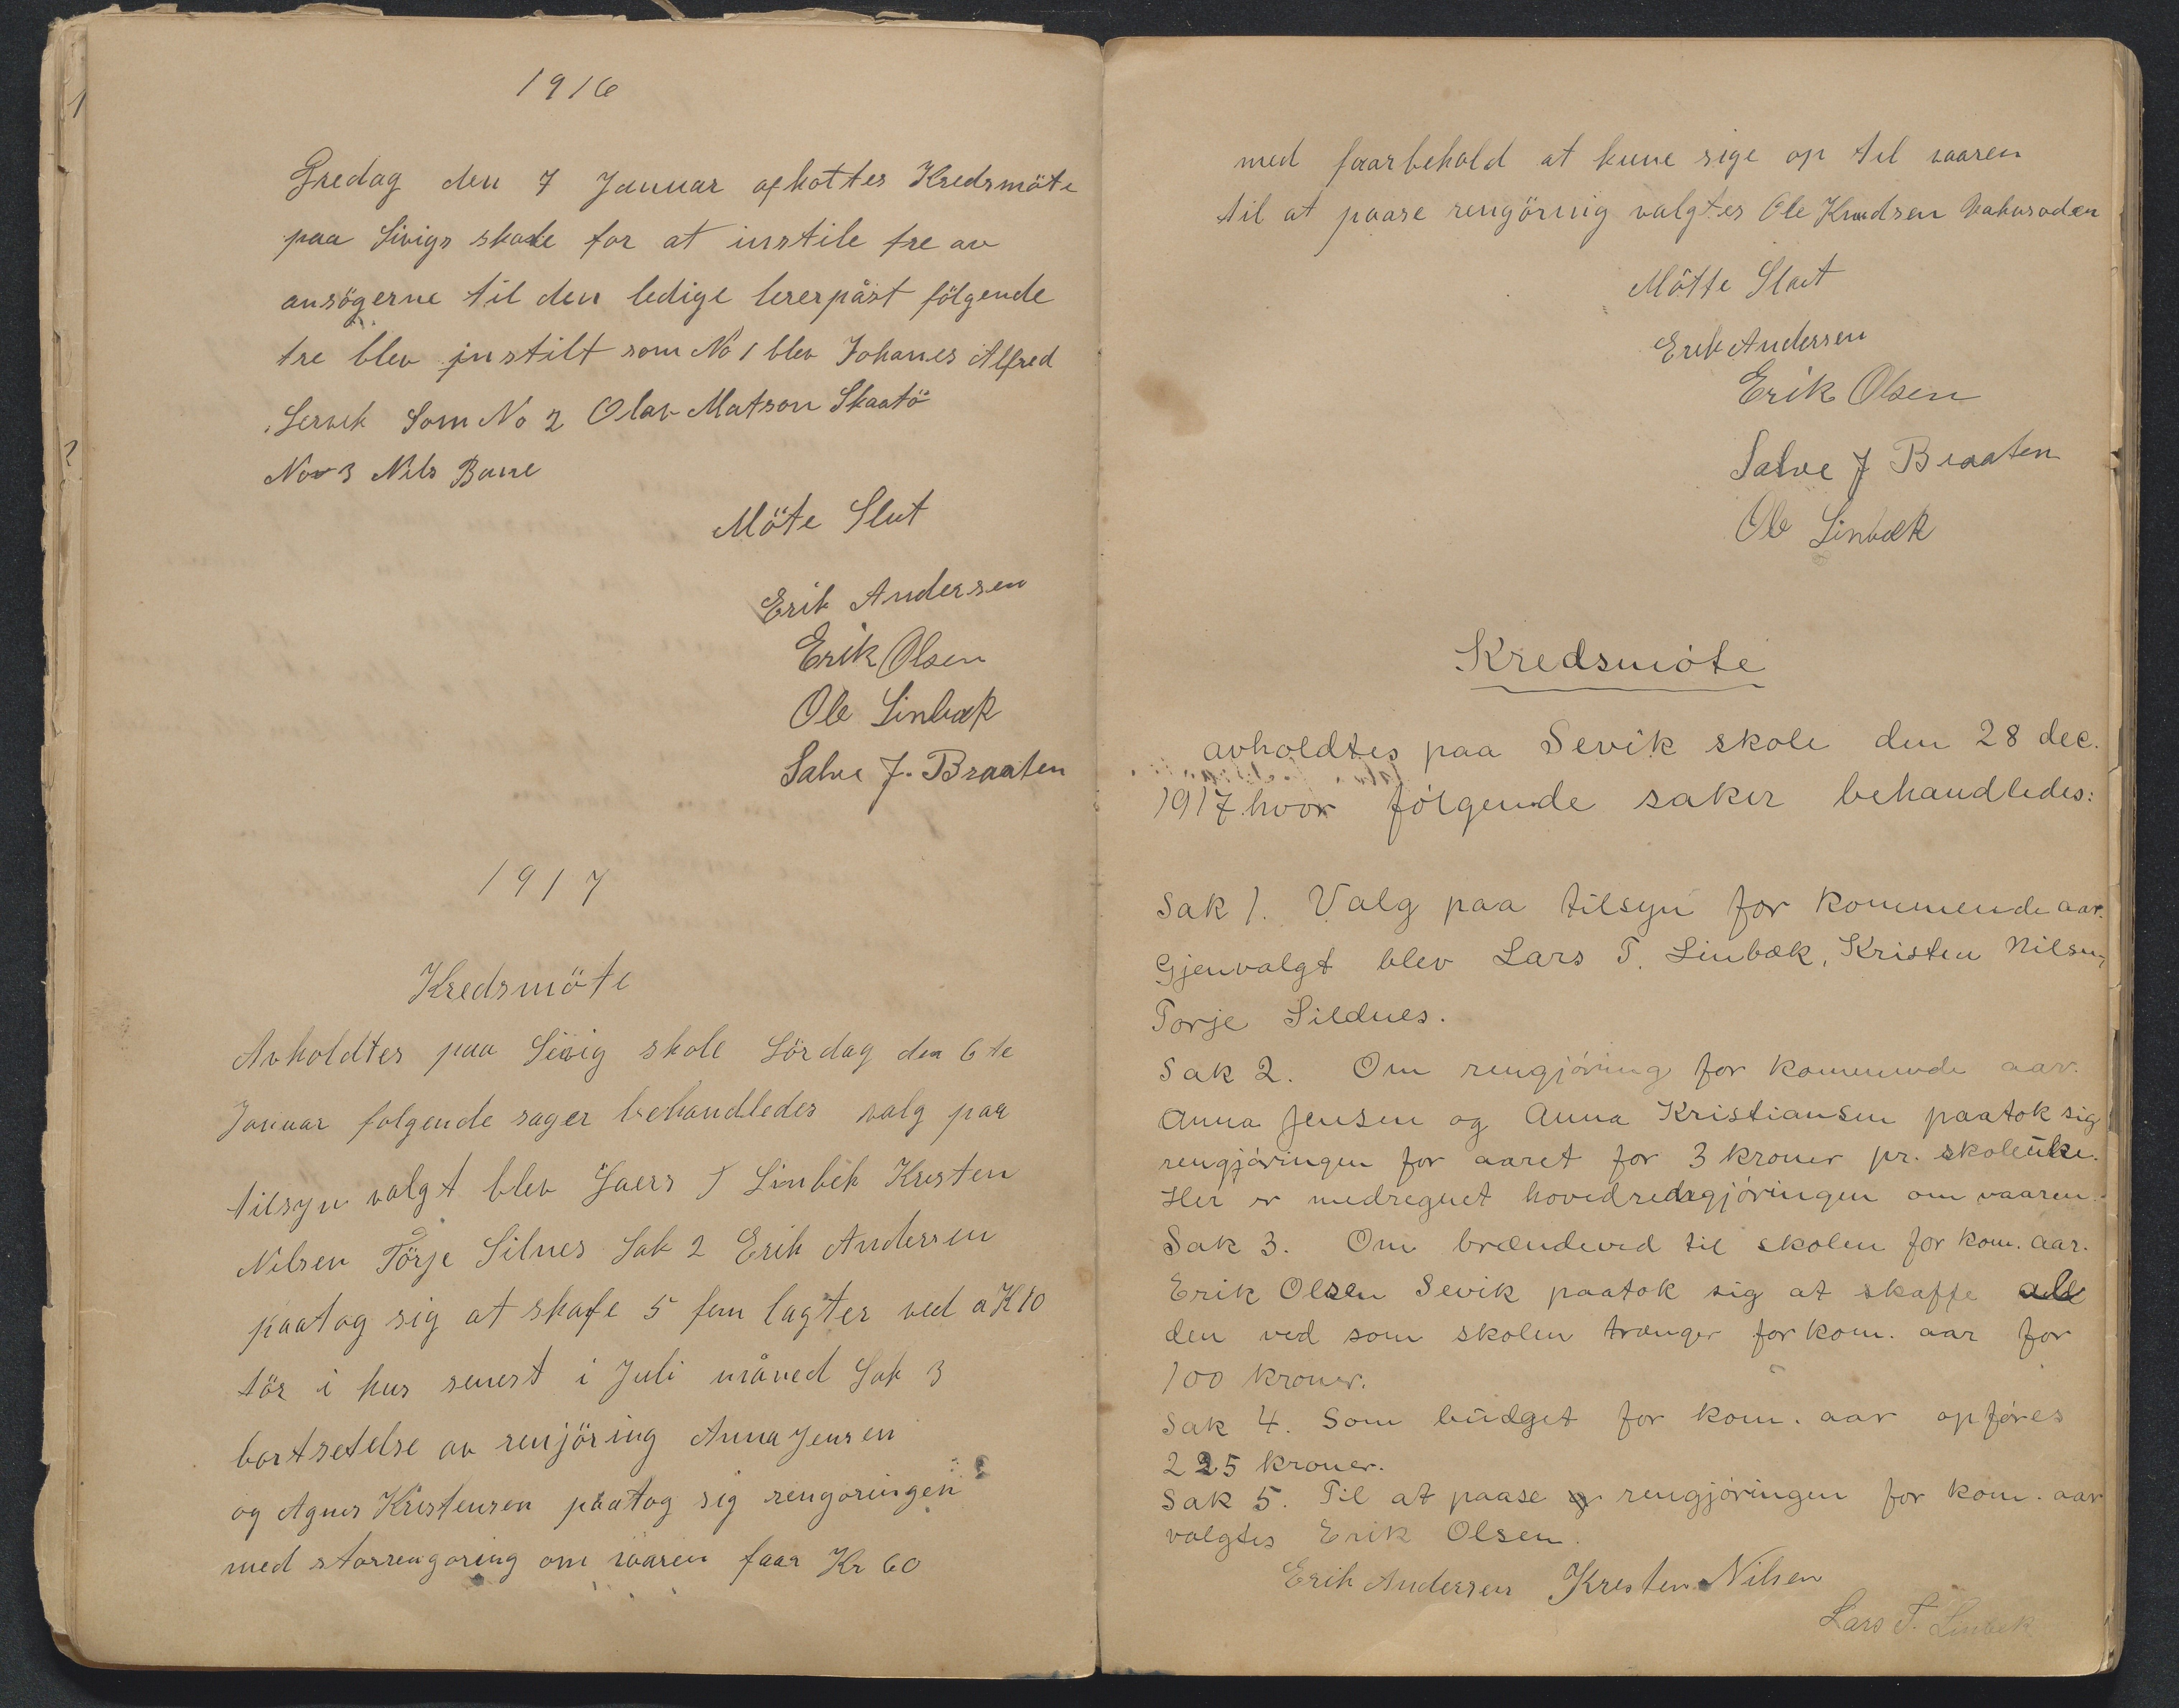 1916
Fredag den 7 Januar afhottes Kredsmöte
paa Sivigs skole for at instile tre av
ansögerne til den ledige lererpåst fölgende
tre blev instilt som No 1 blev Johanes Alfred
Lervik Som No 2 Olav Matson Skaatö
No 3 Nils Bane
Möte Slut
Erik Andersen
Erik Olsen
Ole Linbæk
Salve J. Braaten
1917
Kredsmöte
Avholdtes paa Sivig skole Lördag den 6te
Januar folgende sager behandledes valg paa
tilsyn valgt blev Laers T Linbek Kresten
Nilsen Törje Silnes Sak 2 Erik Andersen
paatog sig at skafe 5 fem lagter ved a K 10
tör i hus senest i Juli måned Sak 3
bortsetelse av renjöring Anna Jensen
og Agnes Kristensen paatog sig rengoringen
med storrengoring om vaaren faar Kr 60
med faarbehold at kune sige op til vaaren
til at paase rengörnig valgtes Ole Knudsen
Mötte Slut
Erik Andersen
Erik Olsen
Salve J Braaten
Ole Linbæk
Kredsmóte
avholdtes paa Sevik skole den 28 dec.
1917 hvor fólgende saker behandledes:
Sak 1. Valg paa tilsyn for kommende aar.
Gjenvalgt blev Lars T. Linbæk, Kristen Nilsen,
Torje Sildnes.
Sak 2. Om rengjóring for kommende aar.
Anna Jensen og Anna Kristiansen paatok sig
rengjóringen for aaret for 3 kroner pr. skoleuke.
Her er medregnet hovedredngjóringen om vaaren.
Sak 3. Om brændeved til skolen for kom. aar.
Erik Olsen Sevik paatok sig at skaffe all
den ved som skolen trænger for kom. aar for
100 kroner.
Sak 4. Som budget for kom. aar opfóres
225 kroner.
Sak 5. Til at paase rengjóringen for kom. aar
valgtes Erik Olsen.
Erik Andersen Kresten Nilsen
Lars T. Linbek